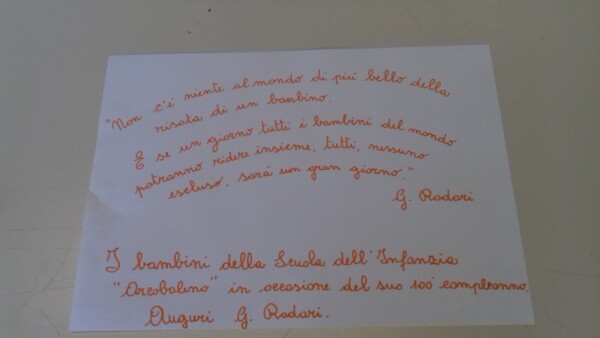 "Non c'è niente al mondo di più bello della
risata di un bambino.
E se un giorno tutti i bambini del mondo
potranno ridere insieme, tutti, nessuno
escluso, sarà un gran giorno."
G. Rodari
I bambini della Scuola dell'Infanzia
"Arcobaleno" in occasione del suo 100° compleanno.
Auguri G. Rodari.